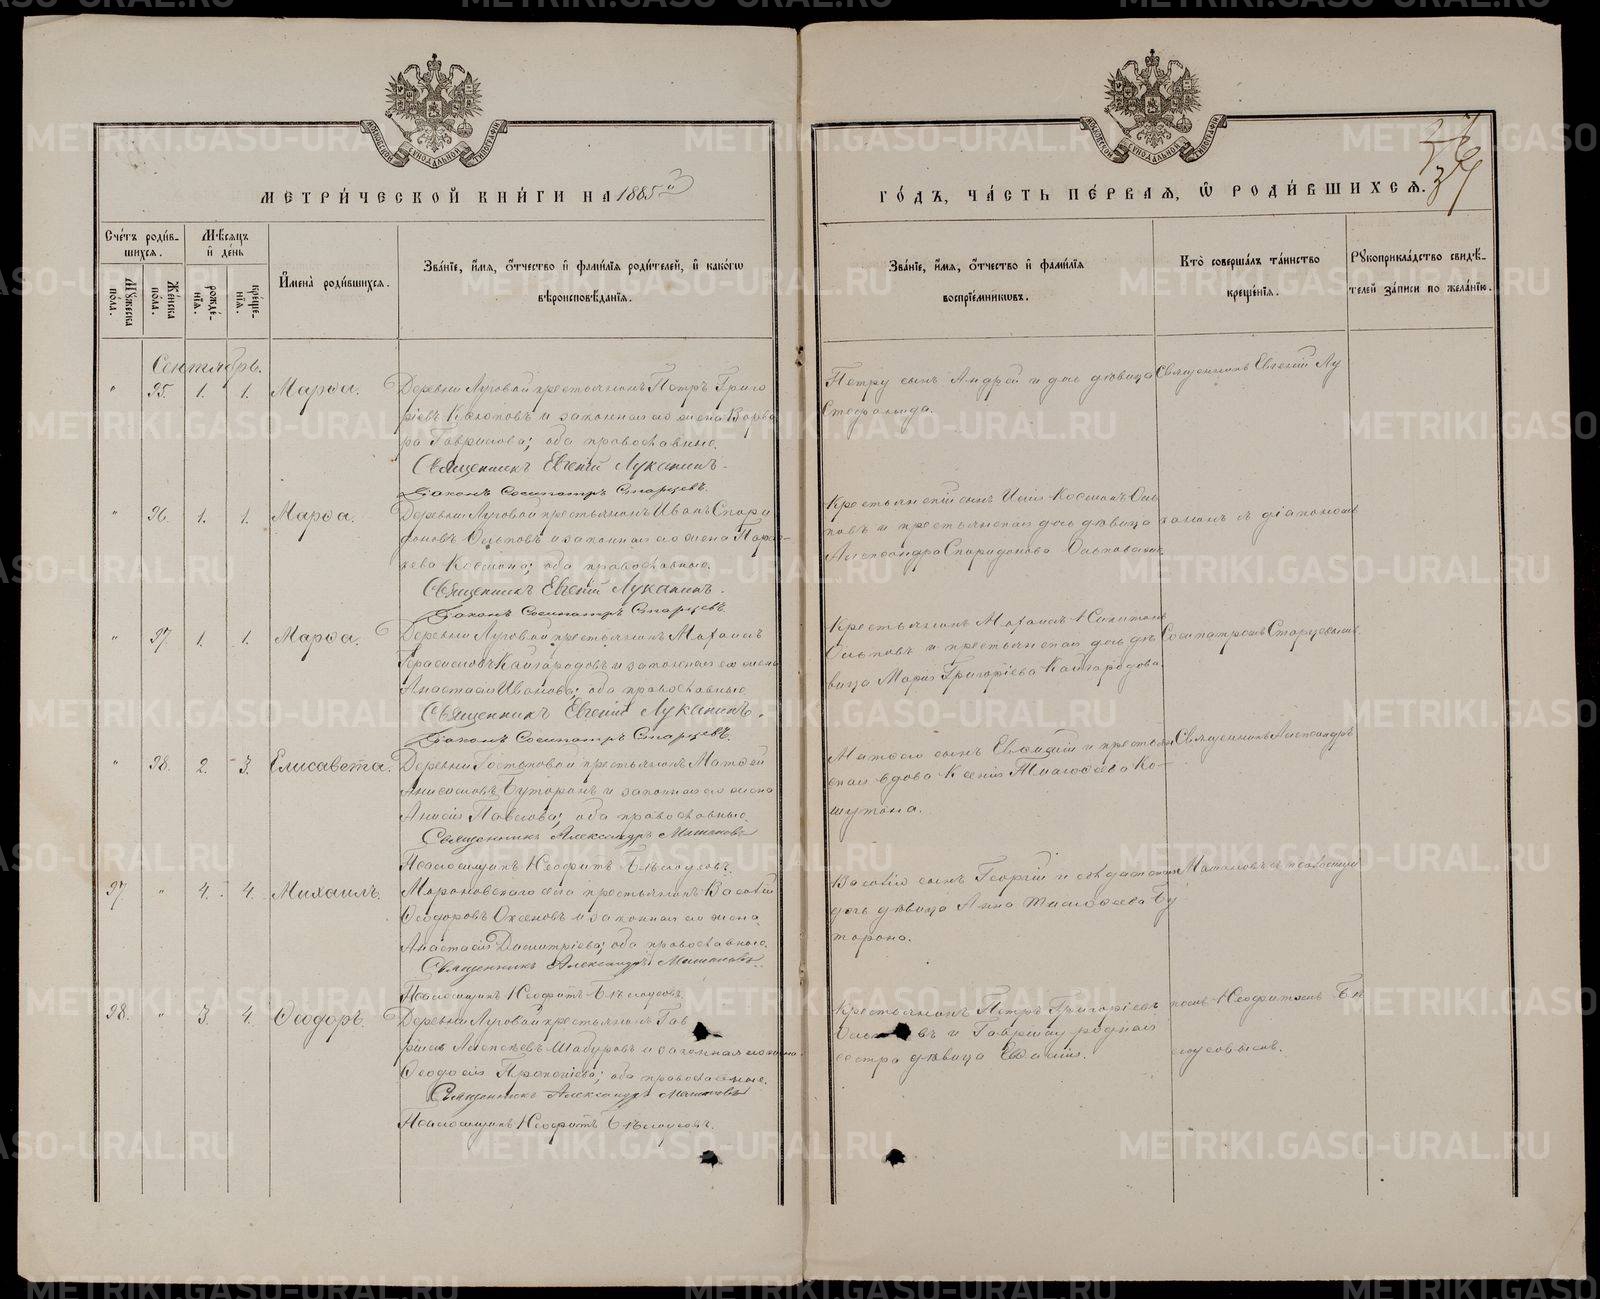 МЕТРИЧЕСКОЙ КНИГИ НА 1885й
ГОДЪ, ЧАСТЬ ПЕРВАЯ, Ѡ РОДИВШИХСЯ.
Счетъ родив-
шихся.
Мужеска пола.
Женска пола.
Мѣсяцъ
и день
рожде-
нія.
креще-
нія.
Имена родившихся.
Званіе, имя, отчество и фамилія родителей, и какогѡ
вѣроисповѣданія.
Званіе, имя, отчество и фамилія
воспріемниковъ.
Кто совершалъ таинство
крещенія.
Рукоприкладство свидѣ-
телей записи по желанію.
Сентябрь.
" 35. 1. 1. Марѳа.
Деревни Луговой крестьянинъ Петръ Григо
ріевъ и законная его жена Варва
ра Гаврилова; оба православные.
Священникъ Евгеній Луканинъ.
Діаконъ Сосипатръ Старцевъ.
Петру сынъ Андрей и дочь дѣвица
Стефанида.
Священникъ Евгеній Лу
" 36. 1. 1. Марѳа.
Деревни Луговой крестьянинъ Иванъ Спири
доновъ и законная его жена Парас-
кева Космина; оба православные.
Священникъ Евгеній Луканинъ.
Діаконъ Сосипатръ Старцевъ.
Крестьянскій сынъ
и крестьянская дочь дѣвица
Александра Спиридонова
канинъ с діакономъ
" 37 1. 1. Марѳа.
Деревни Луговой крестьянинъ Михаилъ
Герасимовъ Кайгородовъ и законная его жена
Анастасія Иванова; оба православные.
Священникъ Евгеній Луканинъ.
Діаконъ Сосипатръ Старцевъ.
Крестьянинъ Михаилъ Никитинъ
и крестьянская дочь дѣ
вица Марія Григоріева Кайгородова.
Сосипатромъ Старцевымъ.
" 38. 2. 3. Елисавета.
Деревни крестьянинъ Матѳей
Анисимовъ Буторинъ и законная его жена
Анисія Павлова; оба православные.
Священникъ Александръ
Псаломщикъ Неофитъ Бѣлоусовъ.
Матѳея сынъ и крестьян
ская вдова Ксенія Тимоѳеева Ко-
шутина.
Священникъ Александръ
37 " 4. 4. Михаилъ.
Мироновскаго села крестьянинъ Василій
Ѳеодоровъ и законная его жена
Анастасія Димитріева; оба православные.
Священникъ Александръ
Псаломщикъ Неофитъ Бѣлоусовъ.
Василія сынъ Георгій и солдатская
дочь дѣвица Анна Тимоѳеева Бу
торина.
съ псаломщи
38. " 3. 4. Ѳеодоръ.
Деревни Луговой крестьянинъ Гав
ріилъ Алексѣевъ Шабуровъ и законная его жена
Ѳеодосія Прокопіева; оба православные.
Священникъ Александръ
Псаломщикъ Неофитъ Бѣлоусовъ.
Крестьянинъ Петръ Григоріевъ
и Гавріилу родная
сестра дѣвица
комъ Неофитомъ Бѣ
лоусовымъ.
МОСКОВСКОЙ СѴНОДАЛЬНОЙ ТИПОГРАФІИ
МОСКОВСКОЙ СѴНОДАЛЬНОЙ ТИПОГРАФІИ
METRIKI.GASO-URAL.RU